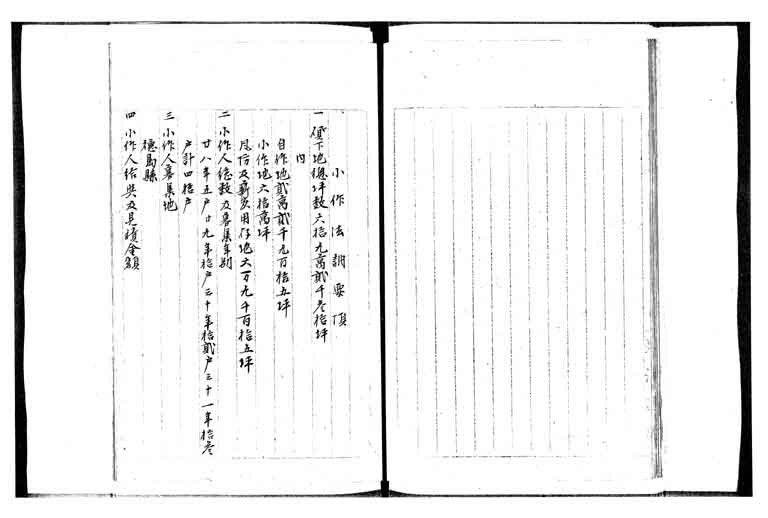 小作法調要頂
一 貸下地總坪数六拾九萬貳千参拾坪
内
自作地貳萬貳千九百拾五坪
小作地六拾萬坪
風防及薪炭用存地六万九千百拾五坪
二 小作人総数及募集年別
廿八年五戸廿九年拾戸三十年拾貳戸三十一年拾参
戸計四拾戸
三 小作人募集地
徳島縣
四 小作人給與及見積金額